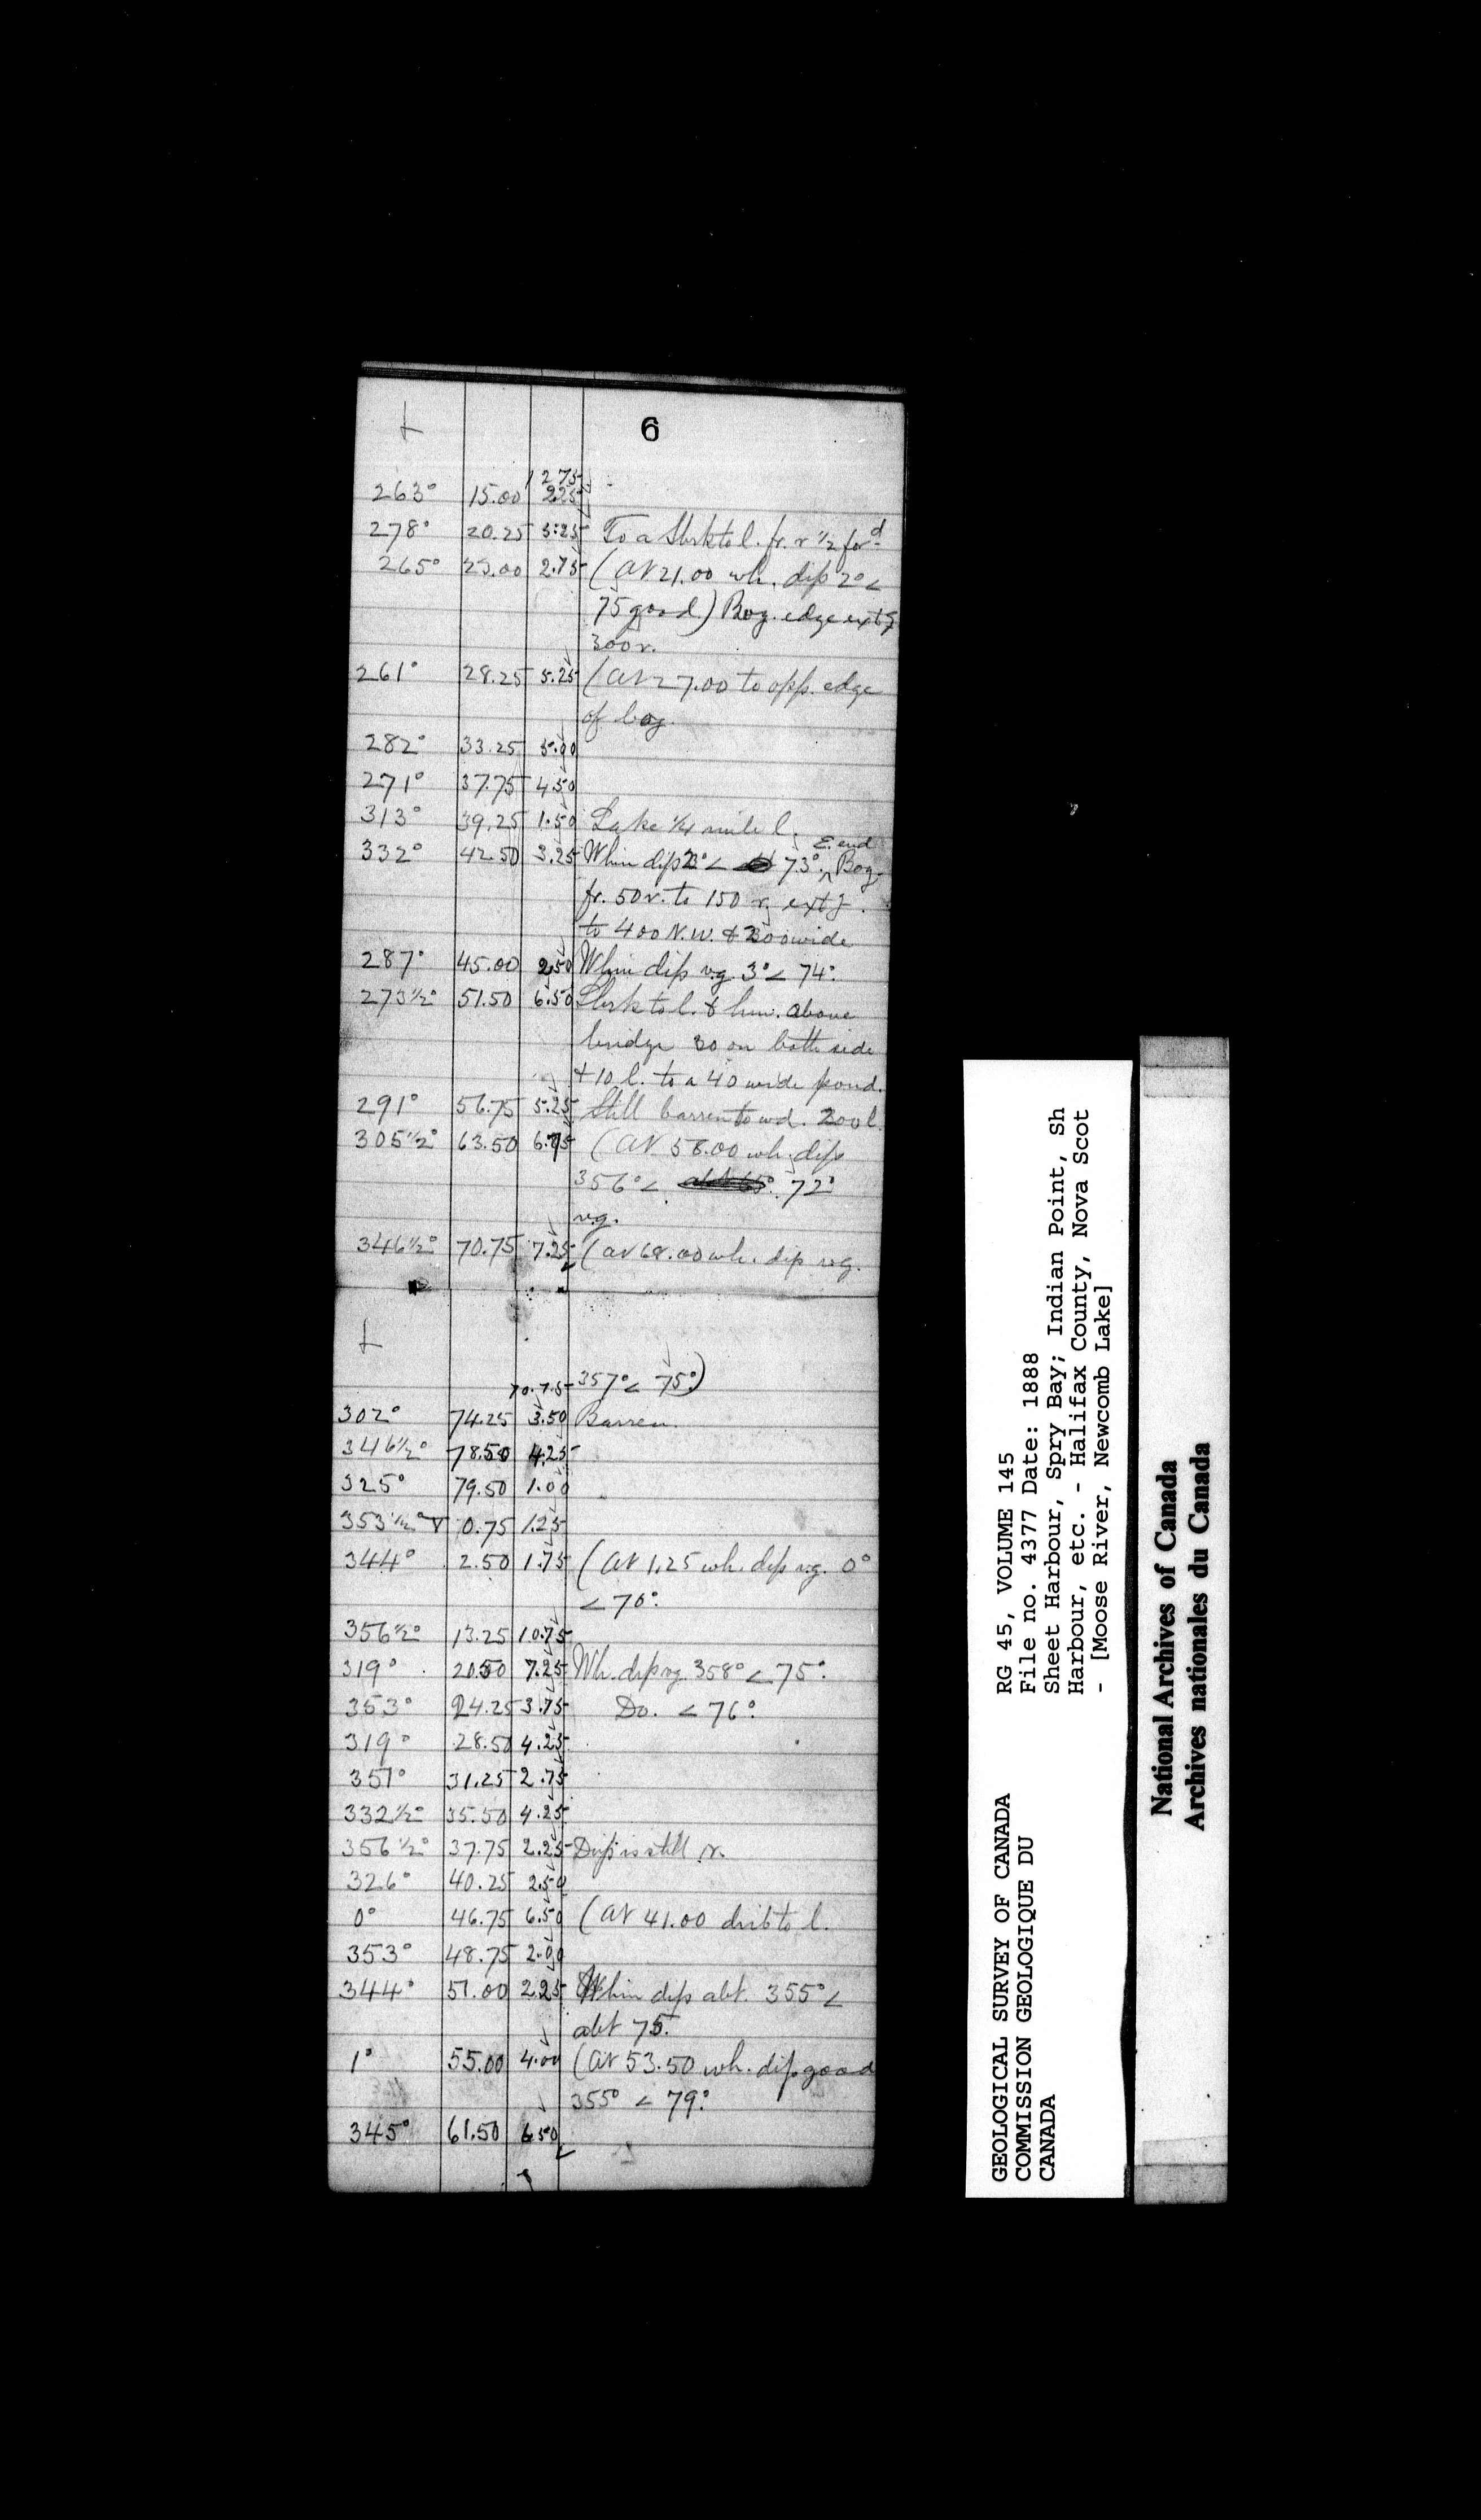 6
12.75
263° 15.00 2.25
278° 20.25 5.25 To a Sbrk to l. fr. r ½ for^d
265° 23.00 2.75 (At 21.00 wh. dip 2° <
75 good) Bog. edge extg
300 r.
261° 28.25 5.25 (At 27.00 to opp. edge
of bog.
282° 33.25 5.00
271° 37.75 4.50
313° 39.25 1.50 Lake ¼ mile l.
E. end
332° 42.50 3.25 Whin dip 3° < 73°. Bog
fr. 50 r. to 150 r, extg
to 400 N.W. & 300 wide
287° 45.00 2.50 Whin dip vg 3° < 74°.
273½° 51.50 6.50 Sbrk to l. & above
bridge 30 on both side
+ 10 l. to a 40 wide pond.
291° 56.75 5.25 Still barren to wd. 200 l.
305½° 63.50 6.75 (At 58.00 wh. dip
356° < 72°
vg.
346½° 70.75 7.25 (at 68.00 wh. dip vg.
70.75 357° < 75°)
302° 74.25 3.50 Barren.
346½° 78.50 4.25
325° 79.50 1.00
353½° V 0.75 1.25
344° 2.50 1.75 (At 1.25 wh. dip vg. 0°
< 76°.
356½° 13.25 10.75
319° 20.50 7.25 Wh. dip vg. 358° < 75°.
353° 24.25 3.75 Do. < 76°.
319° 28.50 4.25
351° 31.25 2.75
332½° 35.50 4.25
356½° 37.75 2.25 Dip is still r.
326° 40.25 2.50
0° 46.75 6.50 (At 41.00 drib to l.
353° 48.75 2.00
344° 51.00 2.25 Whin dip abt. 355° <
abt 75.
1° 55.00 4.00 (At 53.50 wh. dip good
355° < 79°.
345° 61.50 6.50
GEOLOGICAL SURVEY OF CANADA
COMMISSION GEOLOGIQUE DU
CANADA
RG 45, VOLUME 145
File no. 4377 Date: 1888
Sheet Harbour, Spry Bay; Indian Point, Sh
Harbour, etc. - Halifax County, Nova Scot
- [Moose River, Newcomb Lake]
National Archives of Canada
Archives nationales du Canada